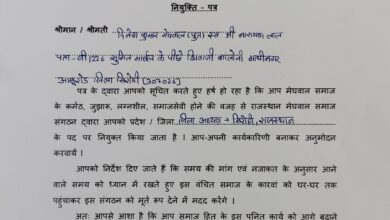 नियुक्ति - पत्र
श्रीमान / श्रीमती दिनेश कुमार मेघवाल (पुत्र) स्व श्री नारायण लाल
पता - बी/226 सुमित मार्बल के पीछे शिवाजी कॉलोनी गांधीनगर
आबूरोड जिला सिरोही (307026)
पत्र के द्वारा आपको सूचित करते हुए हर्ष हो रहा है कि आप मेघवाल समाज
के कर्मठ, जुझारू, लग्नशील, समाजसेवी होने की वजह से राजस्थान मेघवाल समाज
संगठन द्वारा आपको प्रदेश / जिला जिला अध्यक्ष - सिरोही, राजस्थान
के पद पर नियुक्त किया जाता है । आप-अपनी कार्यकारिणी बनाकर अनुमोदन
करवायें ।
आपको निर्देश दिए जाते हैं कि समय की मांग एवं नजाकत के अनुसार आने
वाले समय को ध्यान में रखते हुए इस वंचित समाज के कारवां को घर-घर तक
पहुंचाकर इस संगठन को मूर्त रूप देने में मदद करेंगे ।
अतः आपसे आशा है कि आप समाज हित के इस पुनित कार्य को आगे बढ़ाने